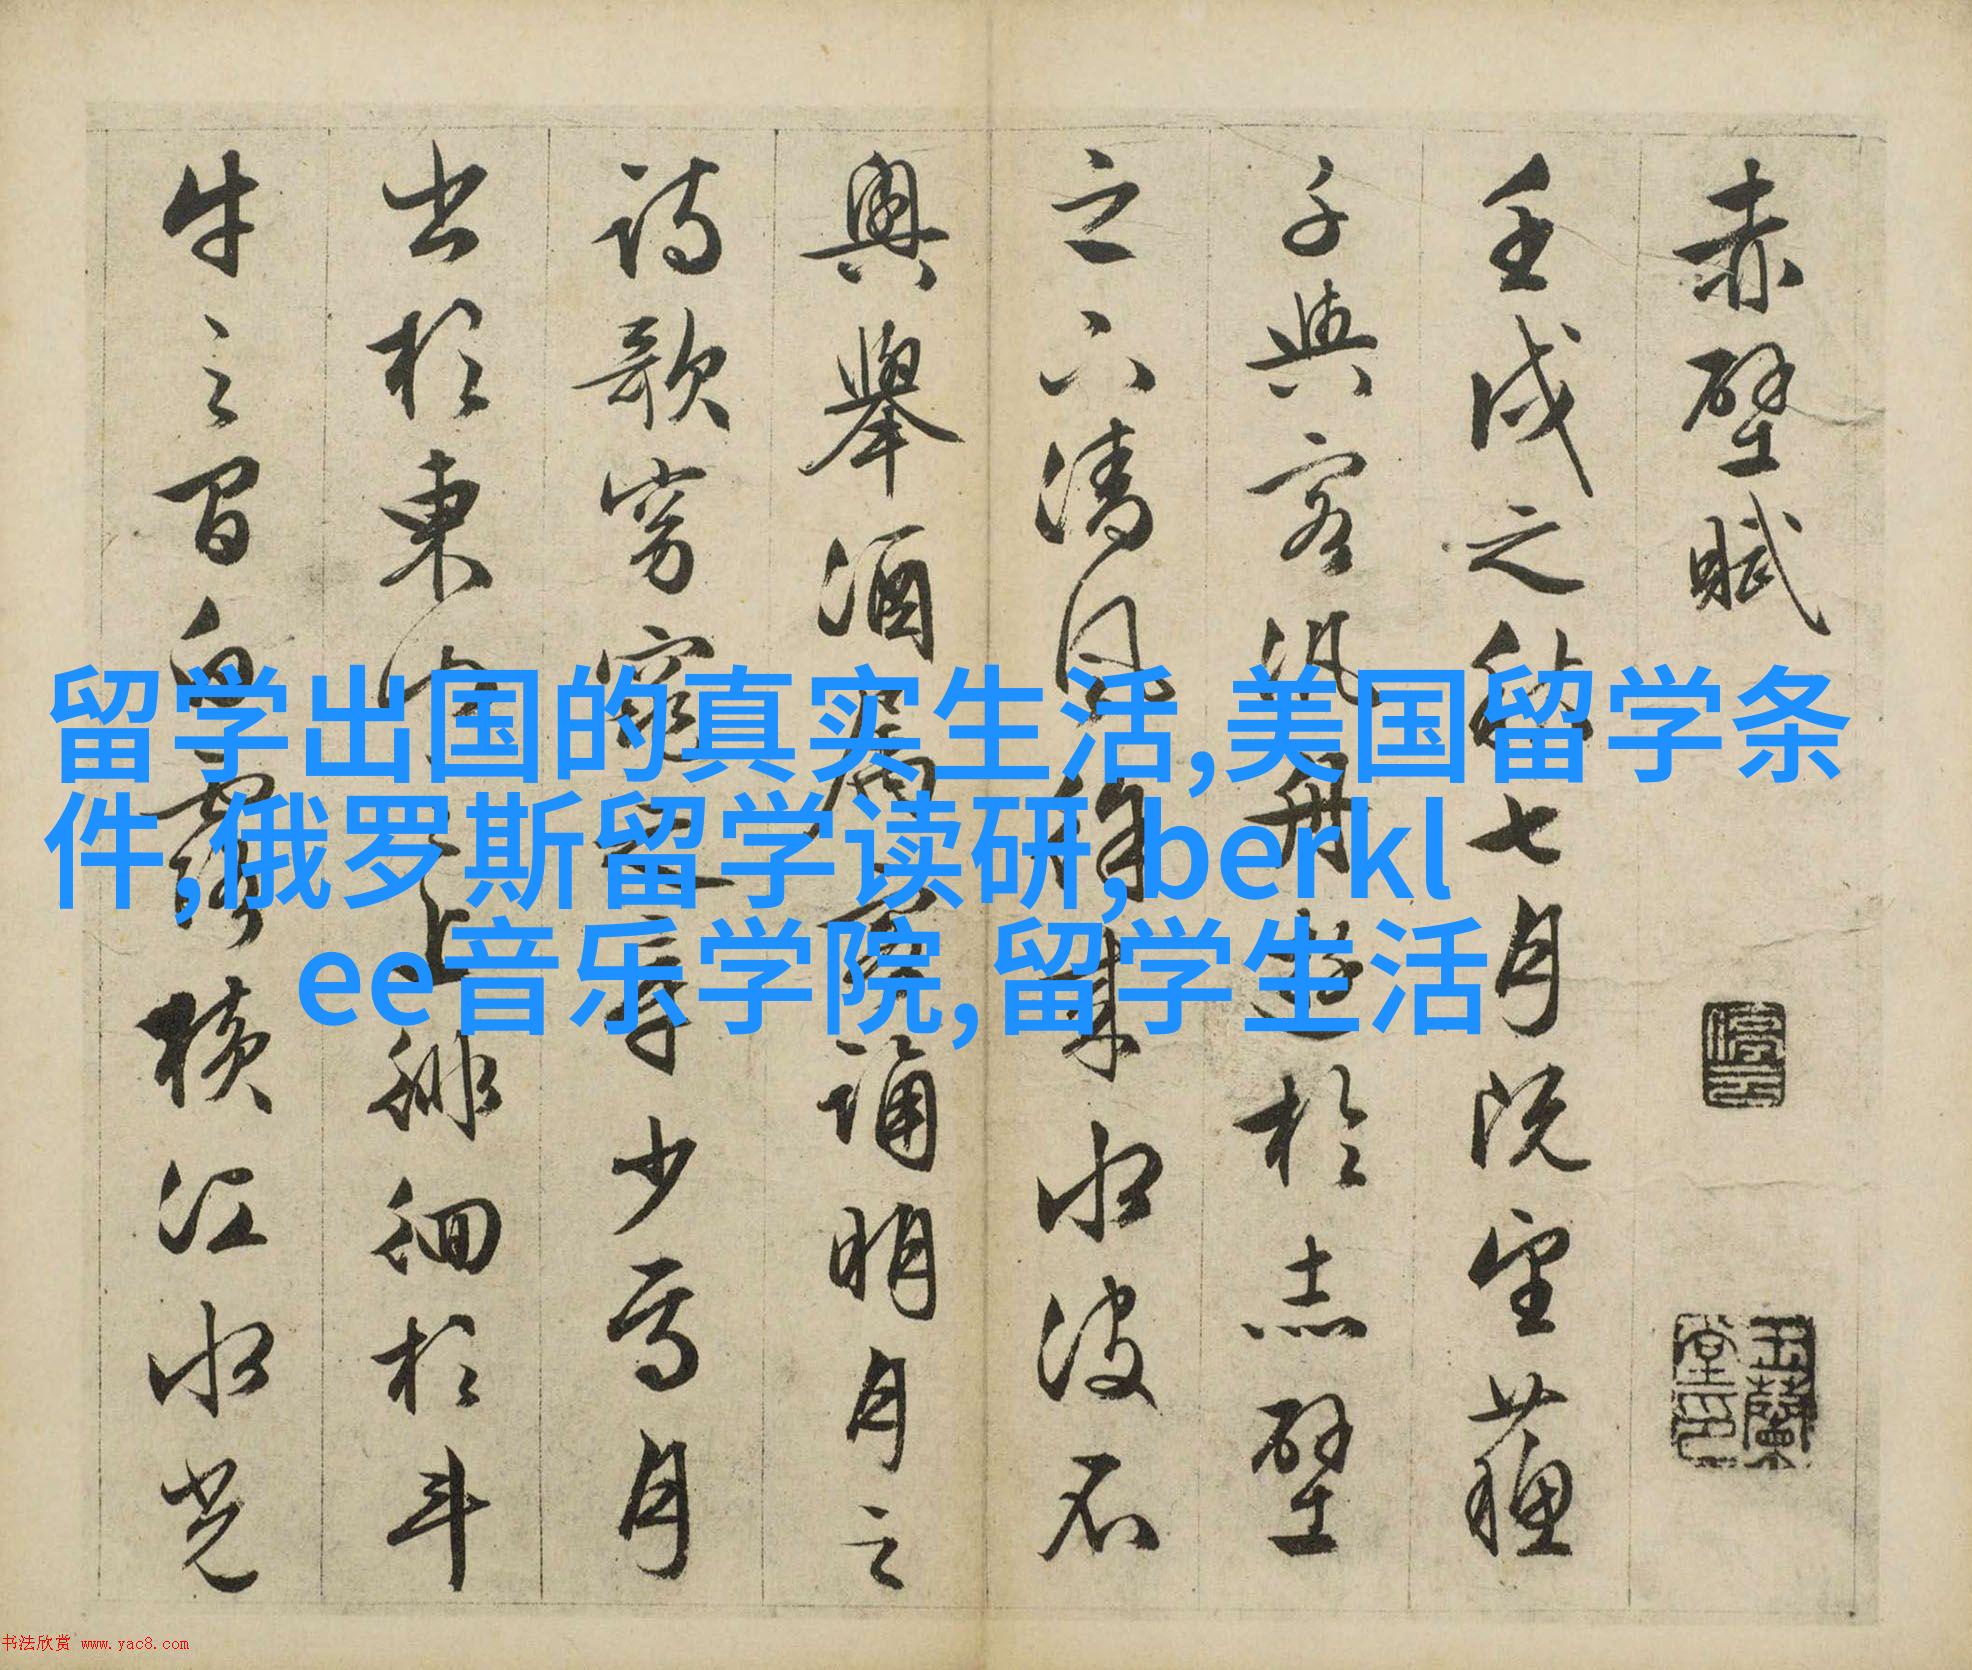 赤壁賦
壬戌之秋七月既望蘓
子與客汎舟遊於赤壁
之下清風徐來水波不
興舉酒屬客誦明月之
詩歌窈窕之章少焉月
出於東山之上徘徊於斗
牛之間白露橫江水光
停雲
玉蘭堂印
留学出国的真实生活,美国留学条
件,俄罗斯留学读研,berkl
ee音乐学院,留学生活
书法欣赏 www.yac8.com